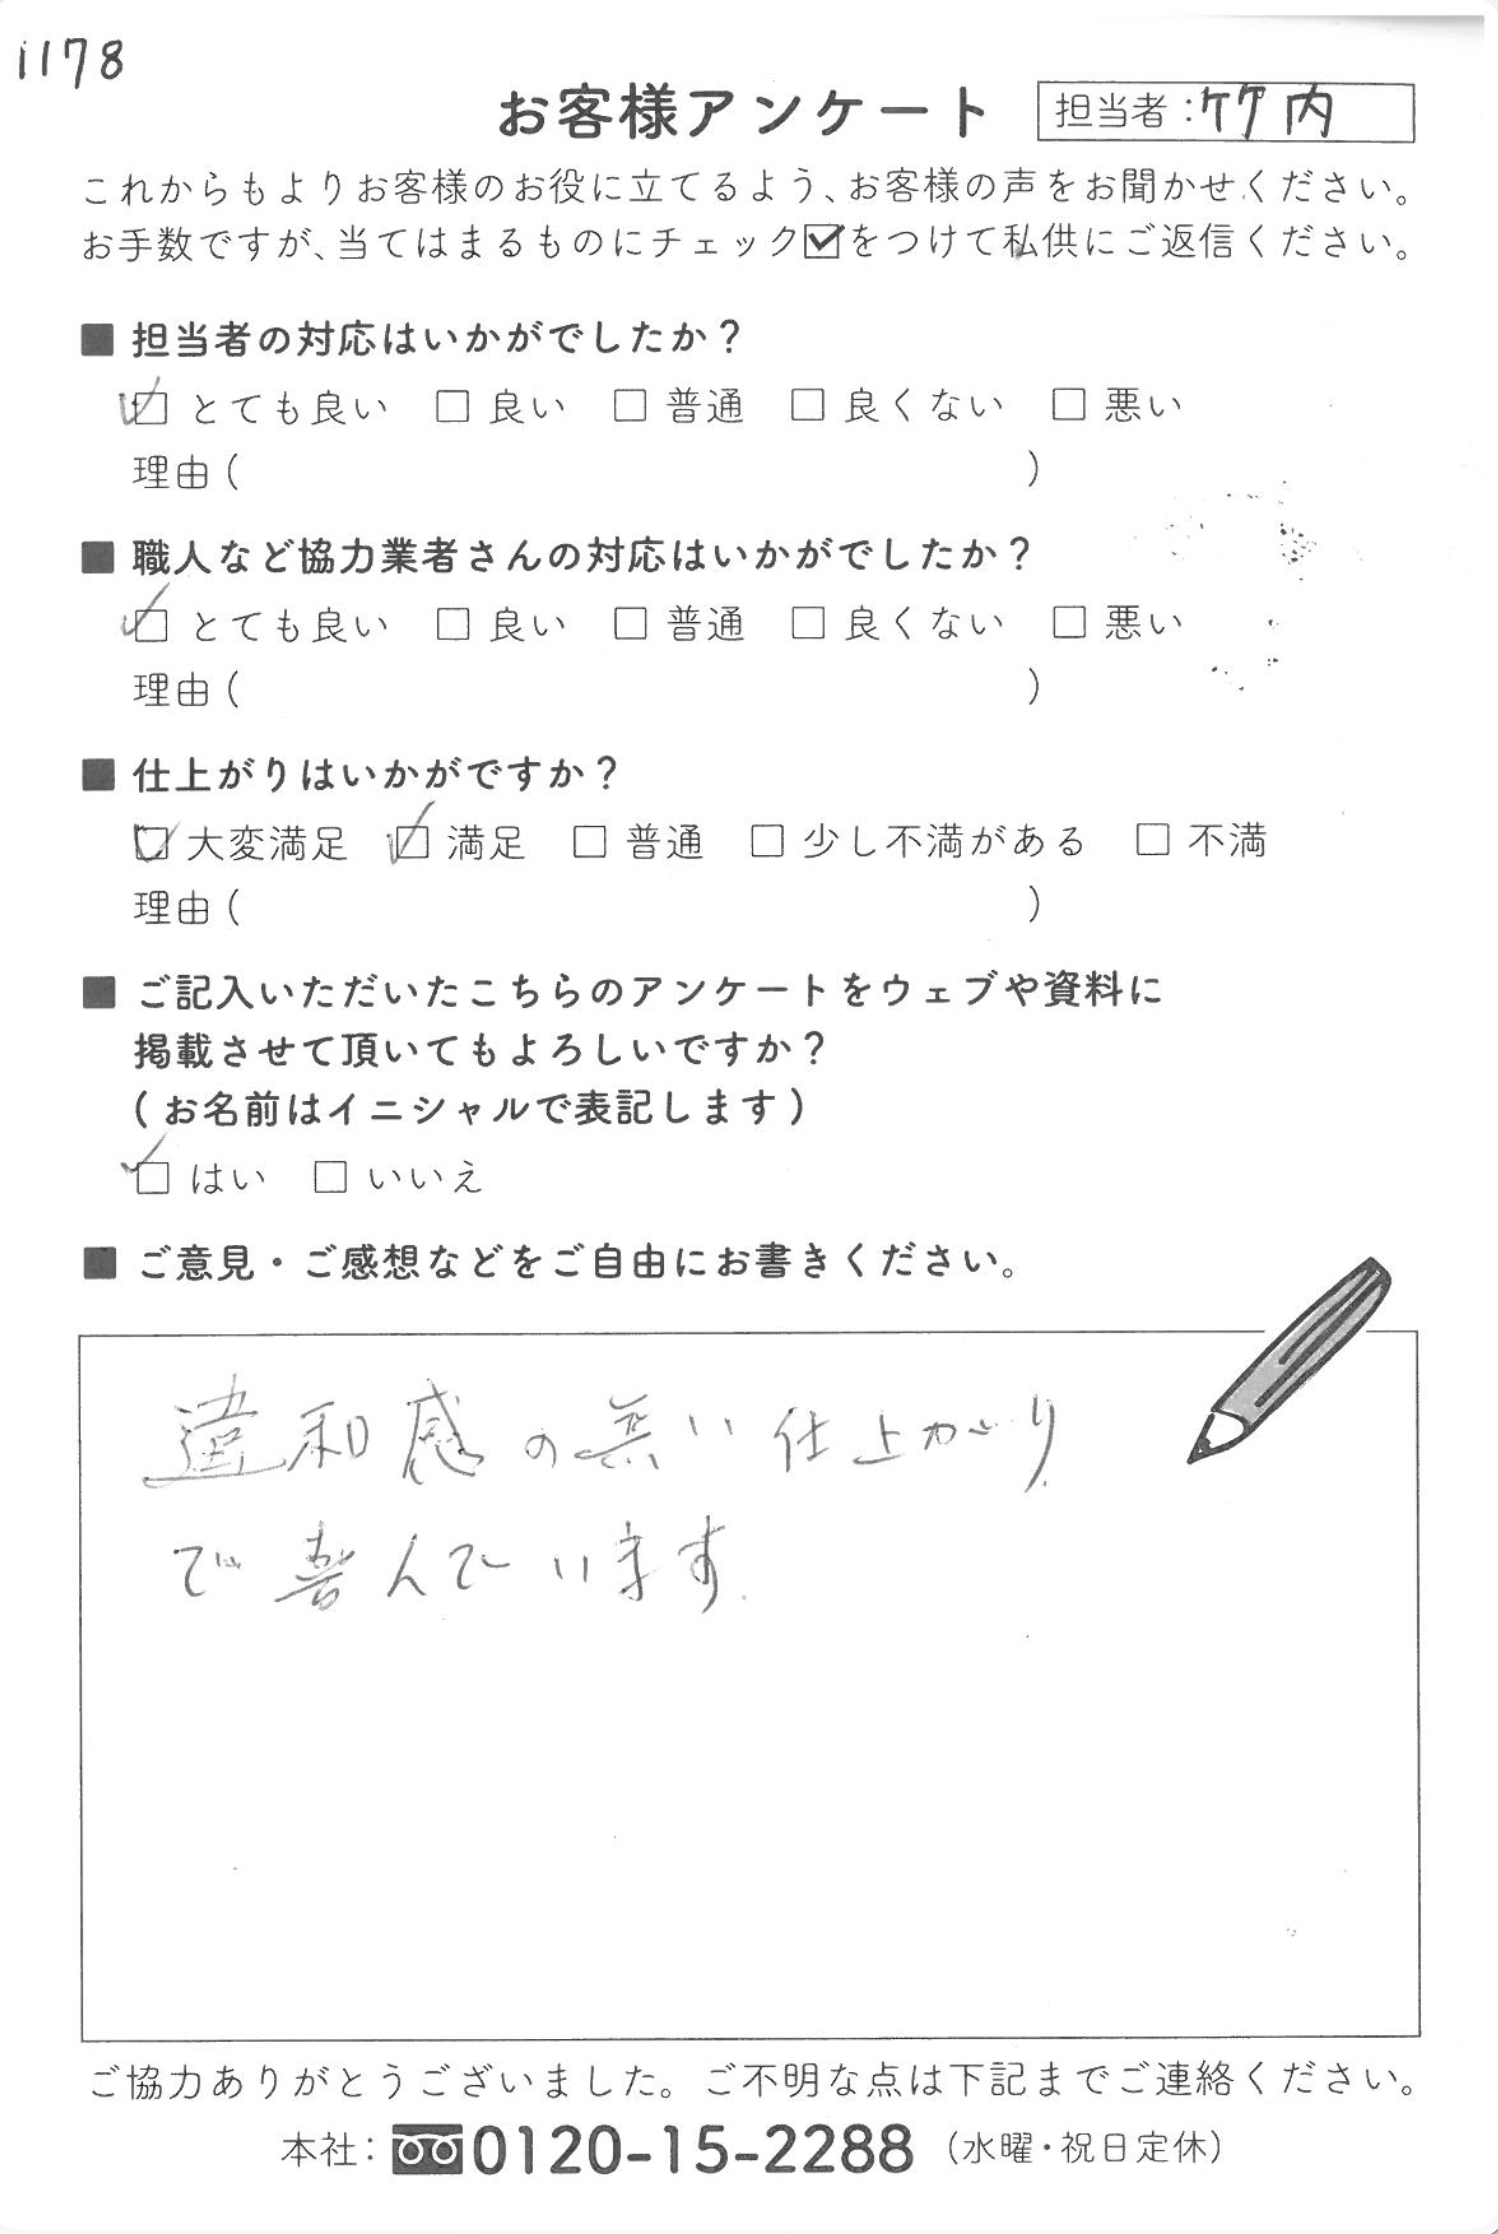 i178
お客様アンケート 担当者：竹内
これからもよりお客様のお役に立てるよう、お客様の声をお聞かせください。
お手数ですが、当てはまるものにチェック☑をつけて私供にご返信ください。
■ 担当者の対応はいかがでしたか？
☑ とても良い □ 良い □ 普通 □ 良くない □ 悪い
理由（ ）
■ 職人など協力業者さんの対応はいかがでしたか？
☑ とても良い □ 良い □ 普通 □ 良くない □ 悪い
理由（ ）
■ 仕上がりはいかがですか？
☑ 大変満足 ☑ 満足 □ 普通 □ 少し不満がある □ 不満
理由（ ）
■ ご記入いただいたこちらのアンケートをウェブや資料に
掲載させて頂いてもよろしいですか？
（お名前はイニシャルで表記します）
☑ はい □ いいえ
■ ご意見・ご感想などをご自由にお書きください。
違和感の無い仕上がり
で喜んでいます.
ご協力ありがとうございました。ご不明な点は下記までご連絡ください。
本社：0120-15-2288（水曜・祝日定休）